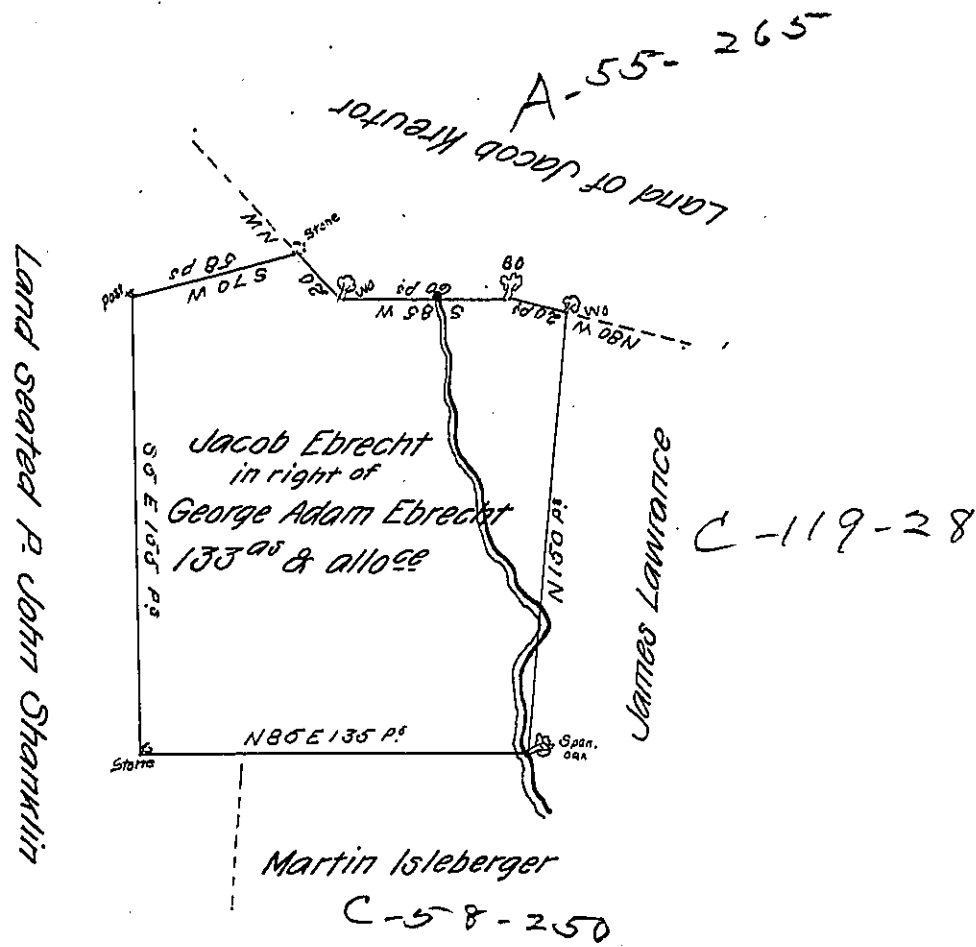 A-55-265
Land of Jacob Kreutor
NW
Stone
58 ps
S 70 W
post
20
WO
60 ps
S 85 W
BO
20 ps
WO
N80 W
Jacob Ebrecht
in right of
George Adam Ebrecht
133as & alloce
S5 E 165 Ps
N150 ps
James Lawrance
C-119-28
Land seated P. John Shanklin
N85E 135 Ps
Stone
Span.
oak
Martin Isleberger
C-58-250